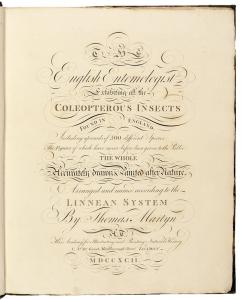 THE
English Entomologist
Exhibiting all the
COLEOPTEROUS INSECTS
FOUND IN ENGLAND
Including upwards of 500 different Species
The Figures of which have never before been given to the Public
THE WHOLE
Accurately drawn & Painted after Nature
Arranged and named according to the
LINNEAN SYSTEM
By Thomas Martyn
His Academy for Illustrating and Painting Natural History
MDCCXCII